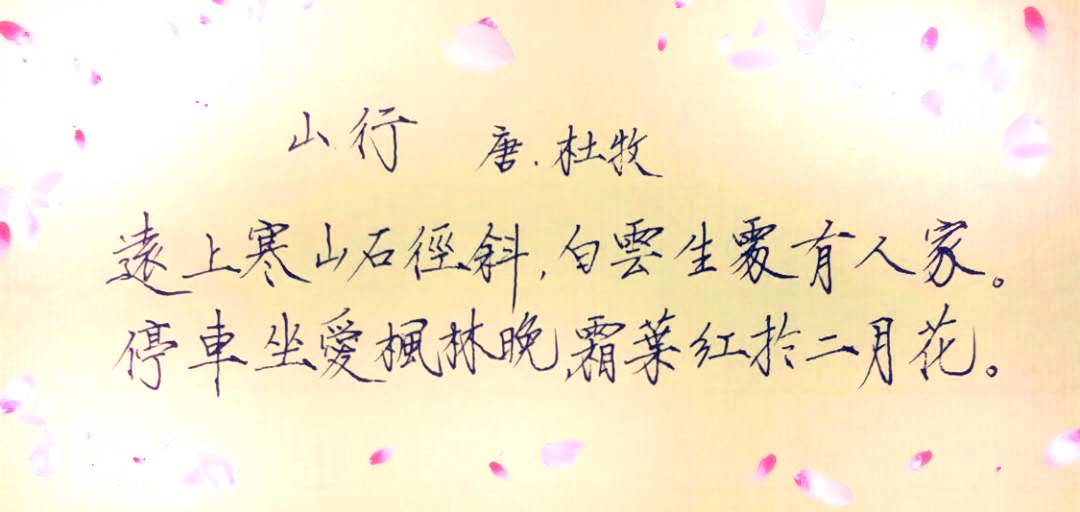 山行 唐.杜牧
遠上寒山石徑斜,白雲生處有人家。
停車坐愛楓林晚,霜葉紅於二月花。